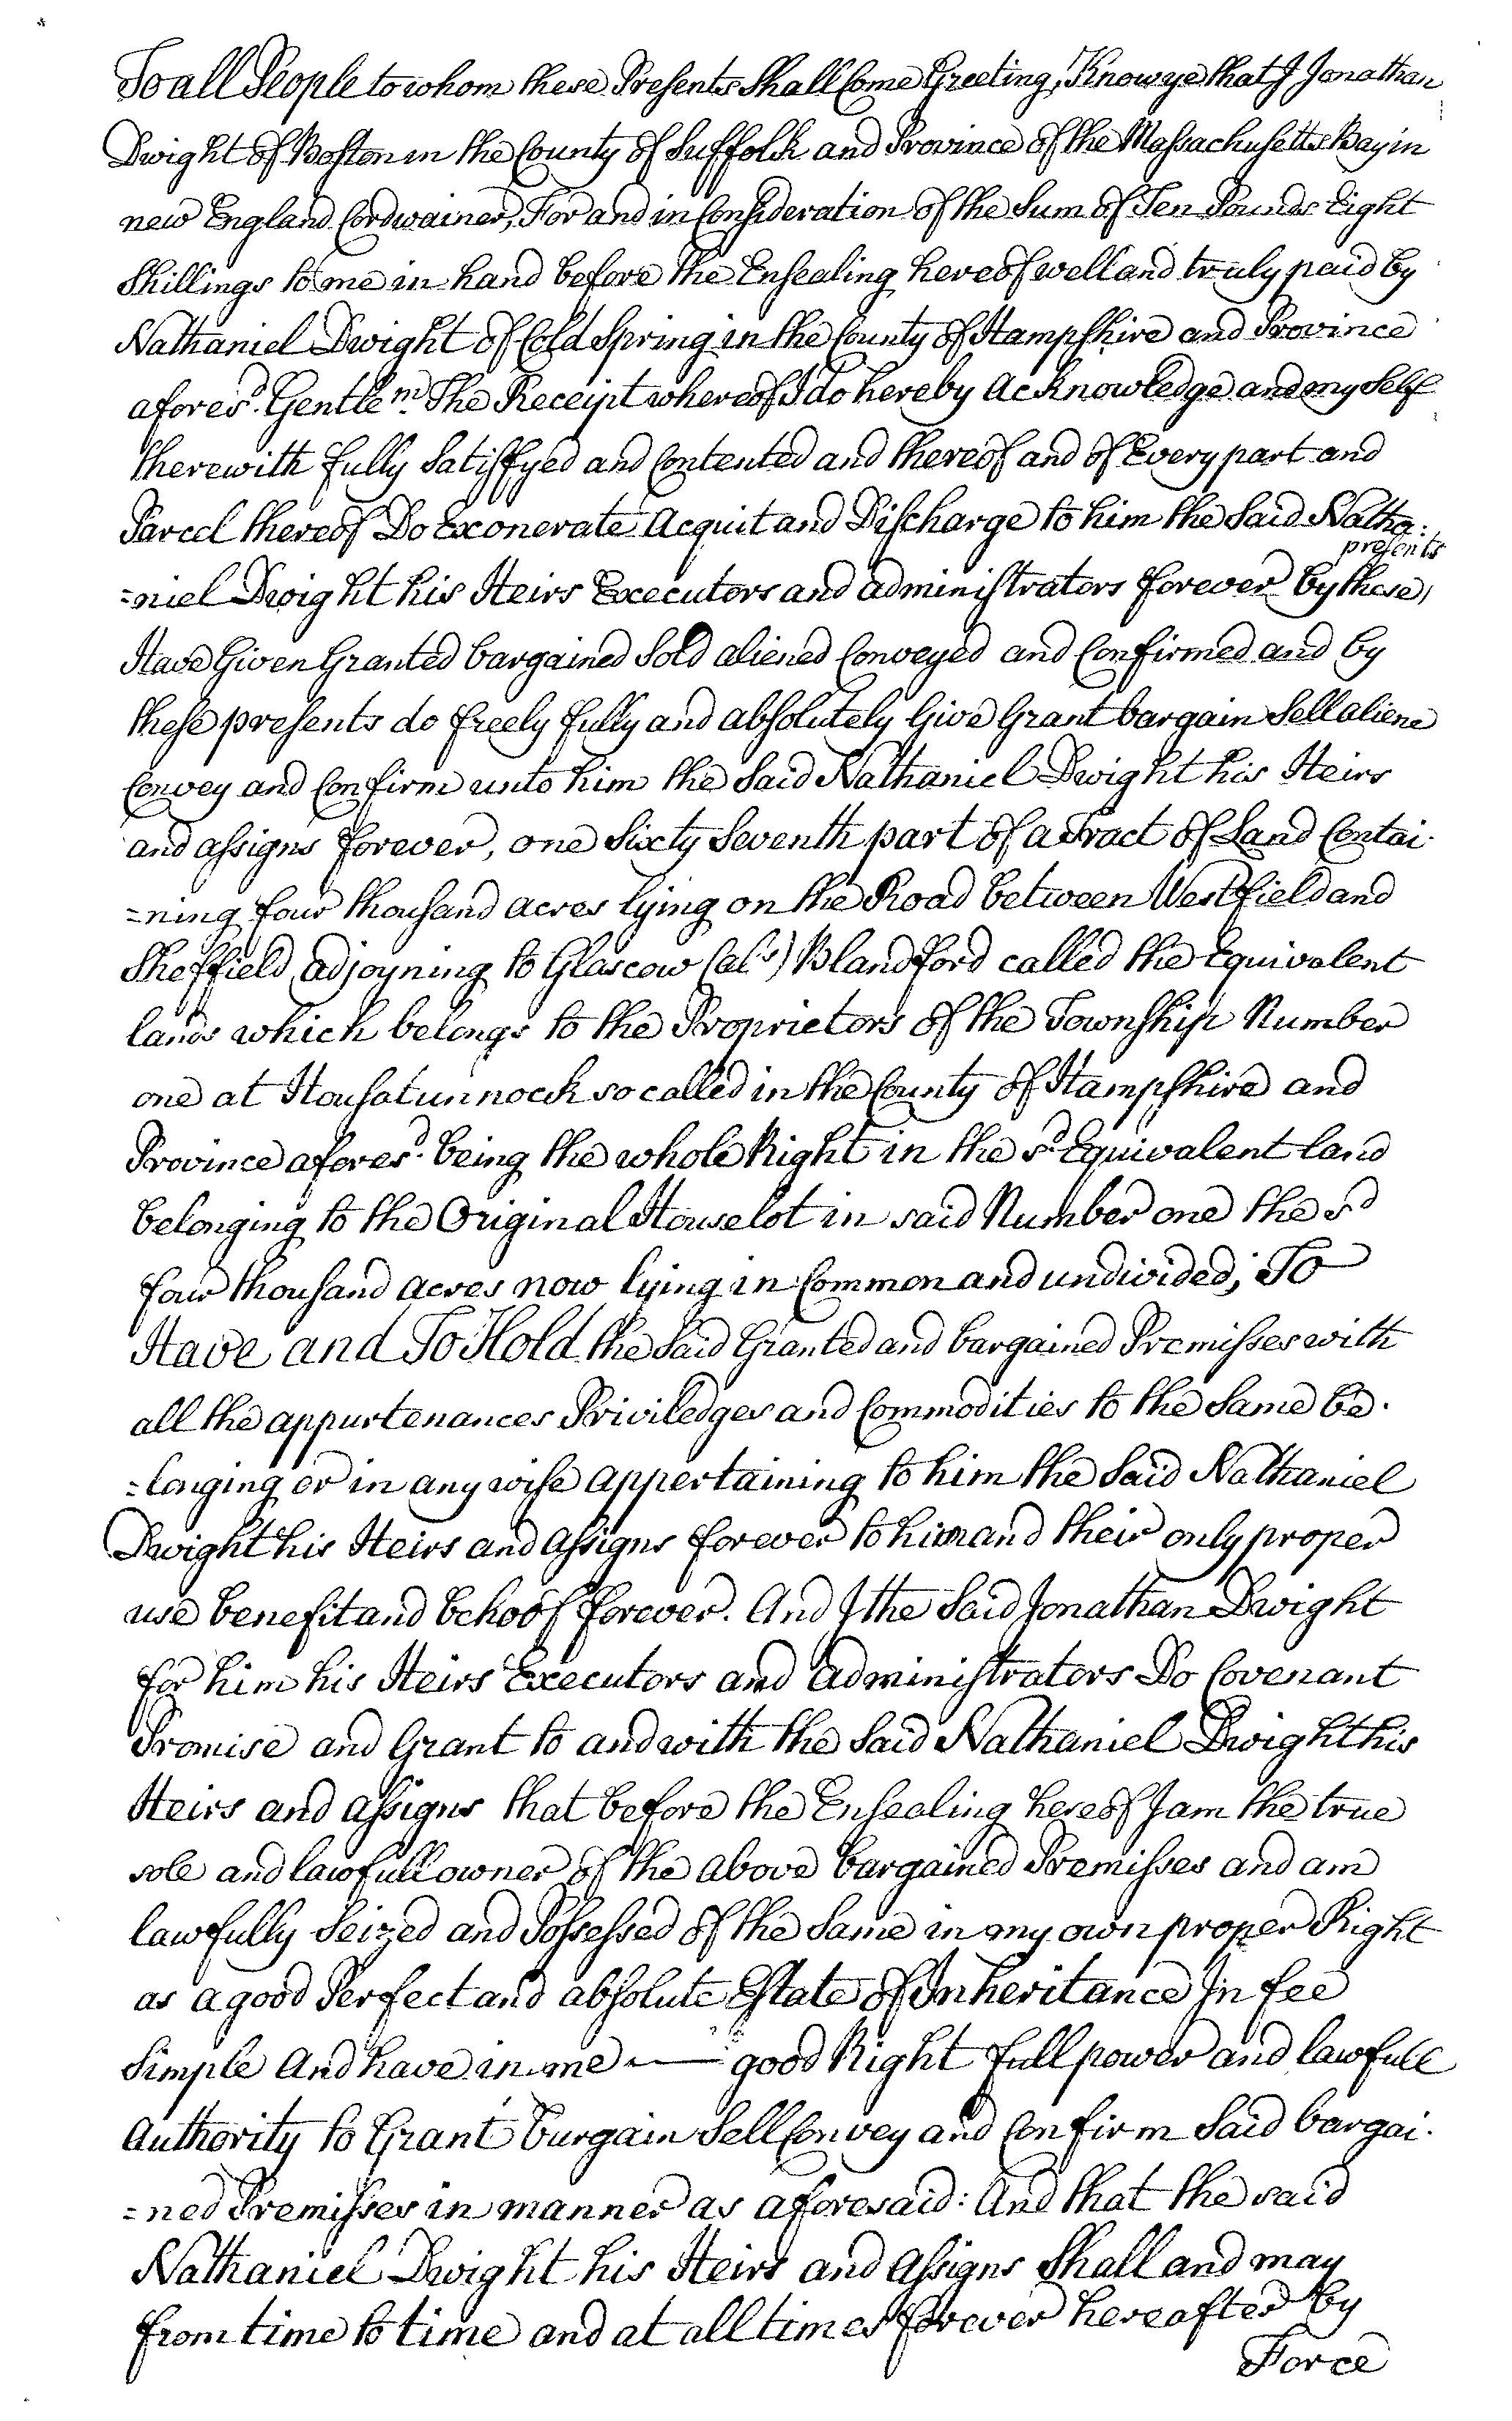 To all People to whom these Presents Shall Come Greeting, Know ye that I Jonathan
Dwight of Boston in the County of Suffolk and Province of the Massachusetts Bay in
new England Cordwainer, For and in Consideration of the Sum of Ten Pounds Eight
Shillings to me in hand before the Ensealing hereof well and truly paid by
Nathaniel Dwight of Cold Spring in the County of Hampshire and Province
afores.d Gentle.m The Receipt whereof I do hereby Acknowledge and my Self
therewith fully Satisfyed and Contented and thereof and of Every part and
Parcel thereof Do Exonerate Acquit and Discharge to him the Said Natha-
presents
=niel Dwight his Heirs Executors and administrators forever by these
Have Given Granted bargained Sold aliened Conveyed and Confirmed and by
these presents do freely fully and absolutely Give Grant bargain Sell aliene
Convey and Confirm unto him the Said Nathaniel Dwight his Heirs
and assigns forever, one Sixty Seventh part of a Tract of Land Contai-
=ning four thousand acres lying on the Road between Westfield and
Sheffield adjoyning to Glascow (als) Blandford called the Equivalent
lands which belongs to the Proprietors of the Township Number
one at Housatunnock so called in the County of Hampshire and
Province afores.d being the whole Right in the s.d Equivalent land
belonging to the Original Houselot in said Number one the sd
four thousand acres now lying in Common and undivided; To
Have and To Hold the Said Granted and bargained Premisses with
all the appurtenances Priviledges and Commodities to the Same be-
=longing or in any wise appertaining to him the Said Nathaniel
Dwight his Heirs and Assigns forever to him and their only proper
use benefit and behoof forever. And I the Said Jonathan Dwight
for him his Heirs Executors and administrators Do Covenant
Promise and Grant to and with the Said Nathaniel Dwight his
Heirs and assigns that before the Ensealing hereof I am the true
sole and lawfull owner of the above bargained Premisses and am
lawfully Seized and Possessed of the Same in my own proper Right
as a good Perfect and absolute Estate of Inheritance In fee
Simple And have in me — good Right full power and lawfull
Authority to Grant bargain Sell Convey and Confirm Said bargai-
=ned Premisses in manner as aforesaid: And that the said
Nathaniel Dwight his Heirs and Assigns Shall and may
from time to time and at all times forever hereafter by
Force